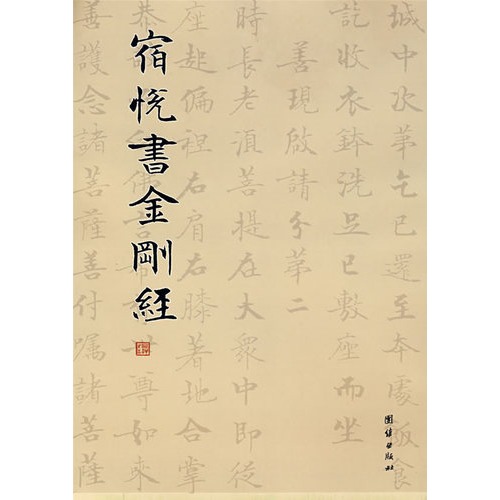 宿悅書金剛經
城中次第乞已還至本處飯食
訖收衣鉢洗足已敷座而坐
善現啟請分第二
時長老湏菩提在大眾中即從
座起偏袒右肩右膝著地合掌
恭佛言希世尊如来
善護念諸菩薩善付囑諸菩薩
團结出版社